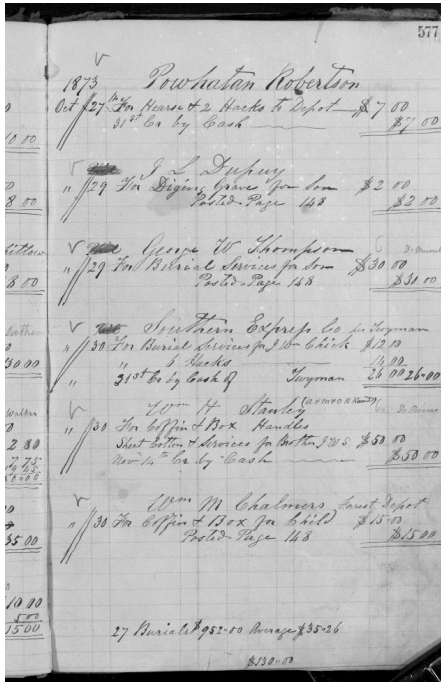 577
1873 Powhatan Robertson
Oct 27th For Hearse & 2 Hacks to Depot $7 00
31st Cr by Cash $7 00
J L Dupuy
" 29 For Diging Grave for Son $2 00
Posted Page 148 $2 00
George W Thompson
" 29 For Burial Services for Son $30 00
Posted Page 148 $30 00
Southern Express Co per Twyman
" 30 For Burial Services for J W Chick $12 00
" 6 Hacks 14 00
" 31st Cr by Cash of Twyman 26 00 26-00
Wm H Stanley
" 30 For Coffin & Box Handles
Sheet Cotton & Services for Brother J W S $50 00
Nov 14th Cr by Cash $50 00
Wm M Chalmers Forest Depot
" 30 For Coffin & Box for Child $15-00
Posted Page 148 $15 00
27 Burials $952-00 Average $35-26
$130-00
10 00
8 00
8 00
30 00
Walker
2 80
35 00
10 00
5 00
15 00